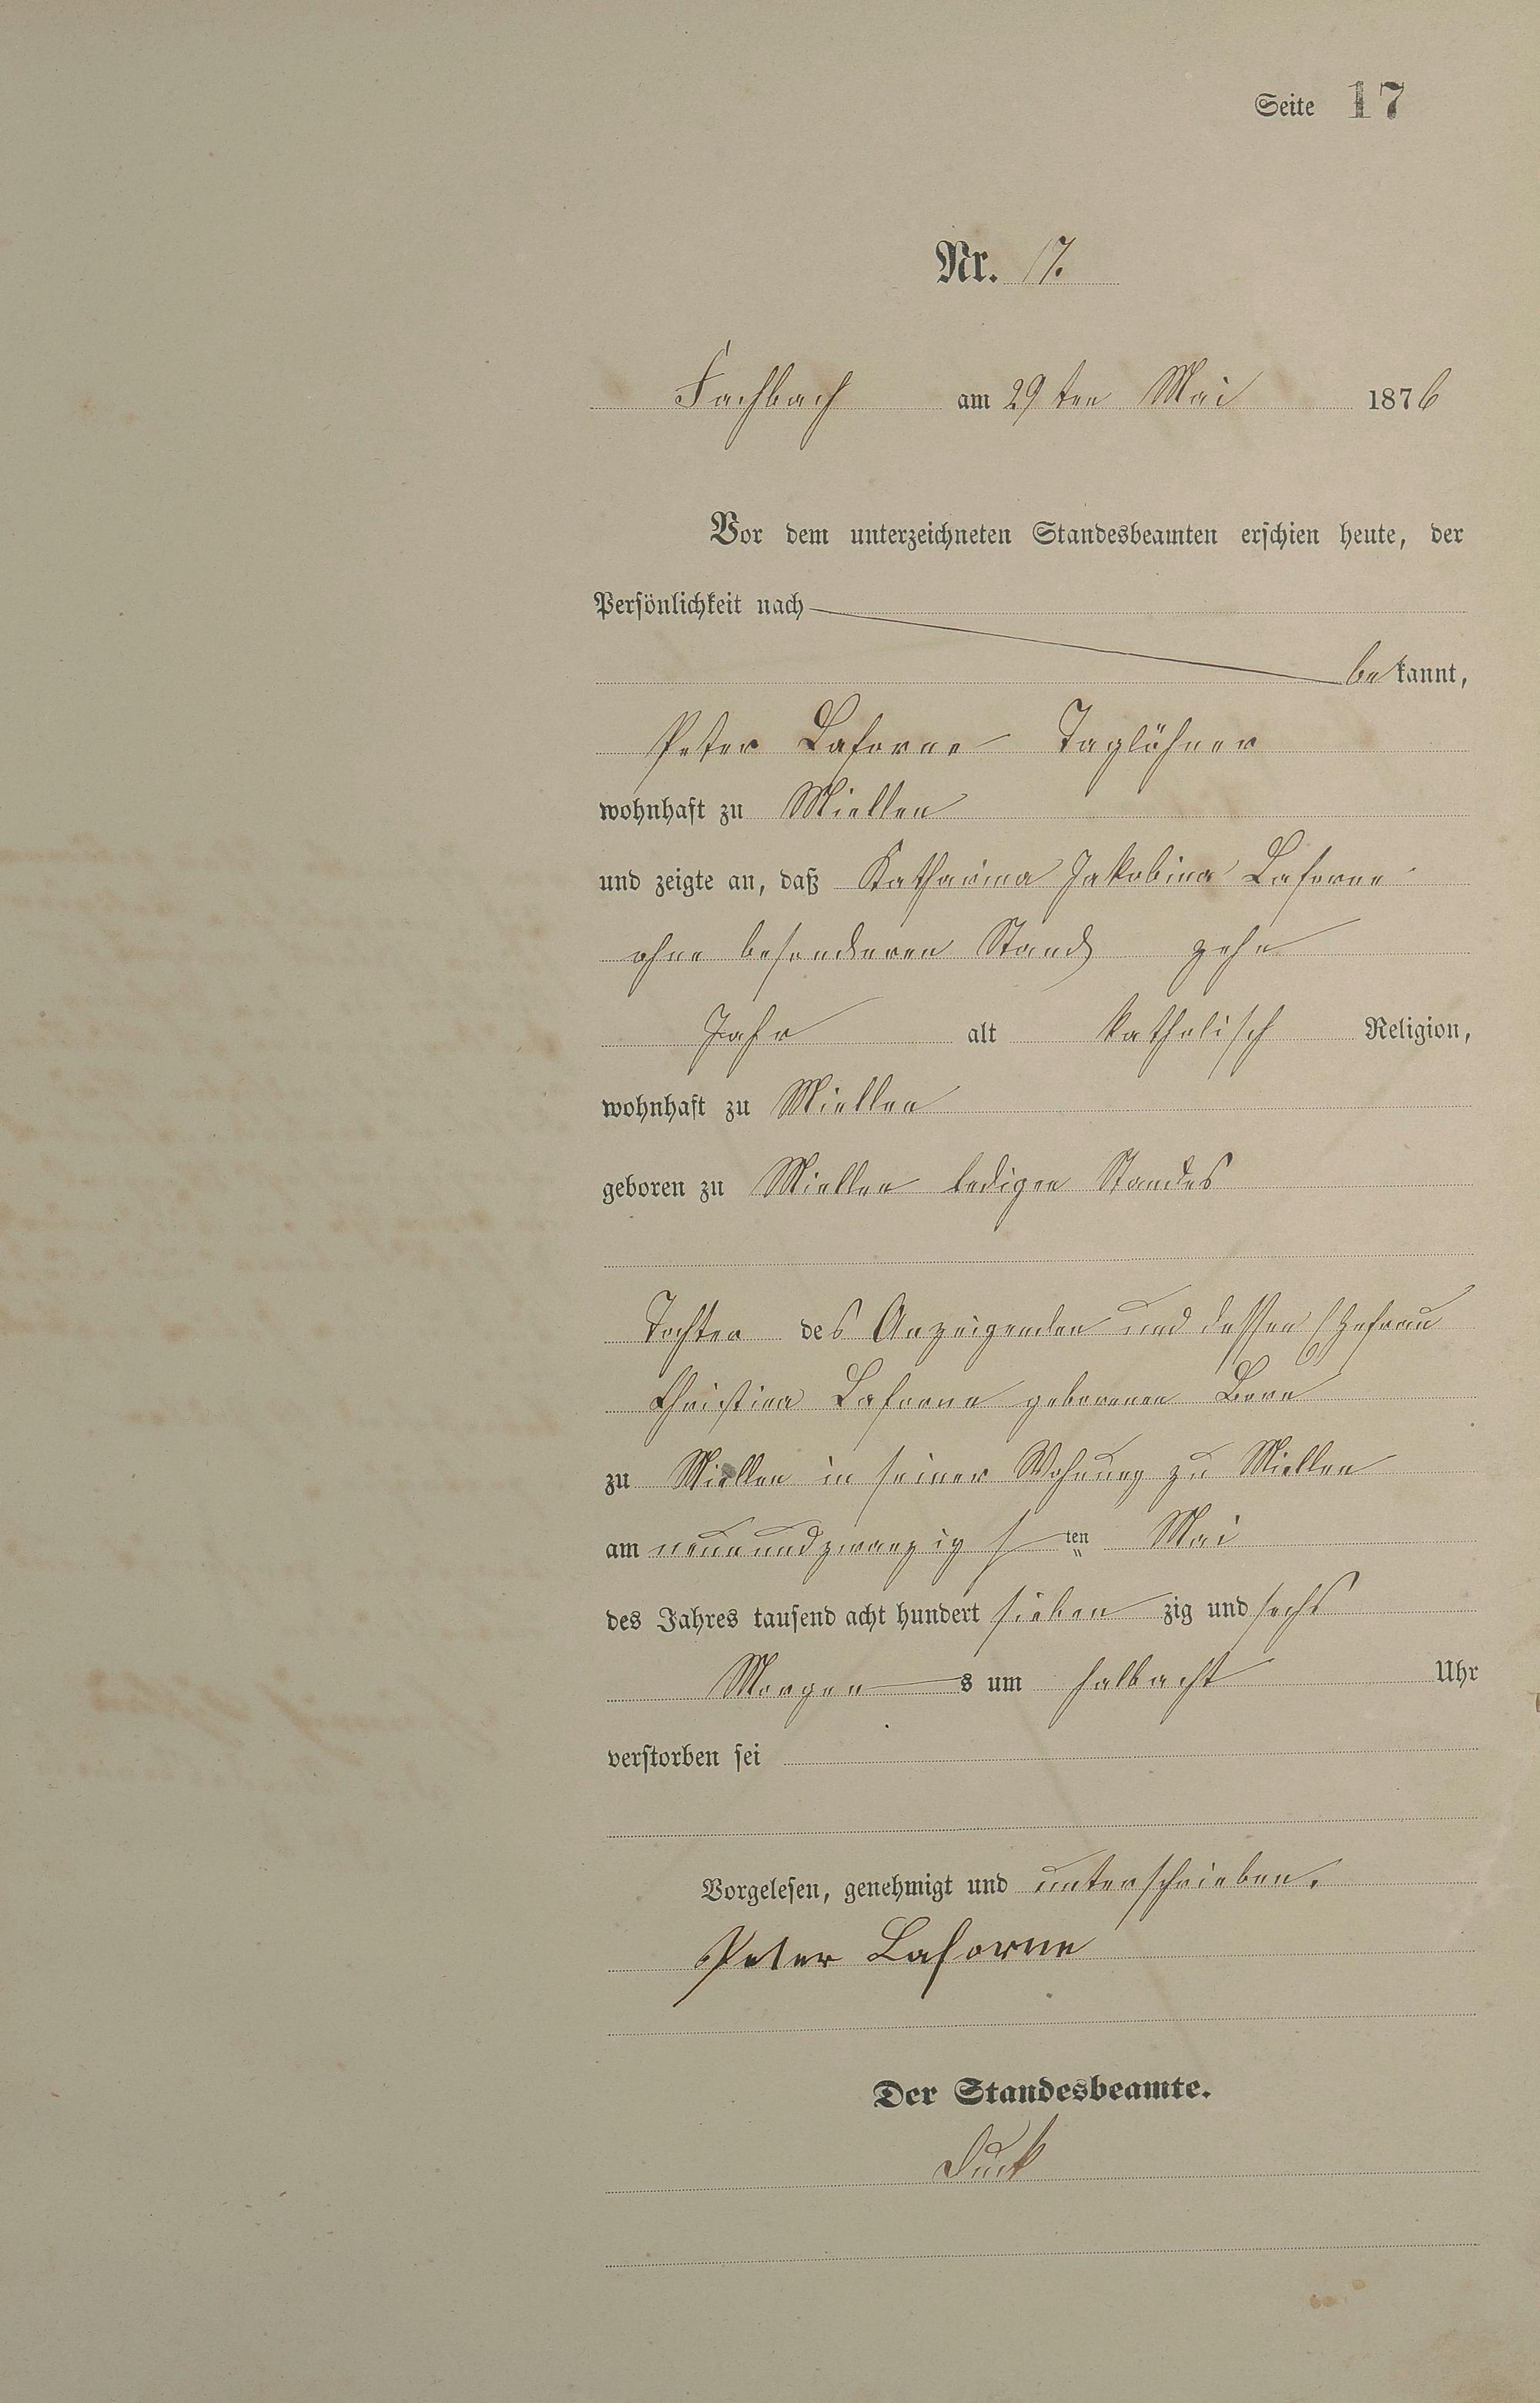 Seite 17
Nr. 17.
Fachbach am 29ten Mai 1876
Vor dem unterzeichneten Standesbeamten erschien heute, der
Persönlichkeit nach
bekannt,
Peter Laforne Taglöhner
wohnhaft zu Miellen
und zeigte an, daß Katharina Jakobina Laforne
ohne besonderen Stand zehn
Jahr alt katholisch Religion,
wohnhaft zu Miellen
geboren zu Miellen ledigen Standes
Tochter des Anzeigenden und dessen Ehefrau
Christina Laforne geborenen
zu Miellen in seiner Wohnung zu Miellen
am neunundzwanzigsten Mai
des Jahres tausend acht hundert siebenzig und sechs
Morgens um halbacht Uhr
verstorben sei
Vorgelesen, genehmigt und unterschrieben.
Peter Laforne
Der Standesbeamte.